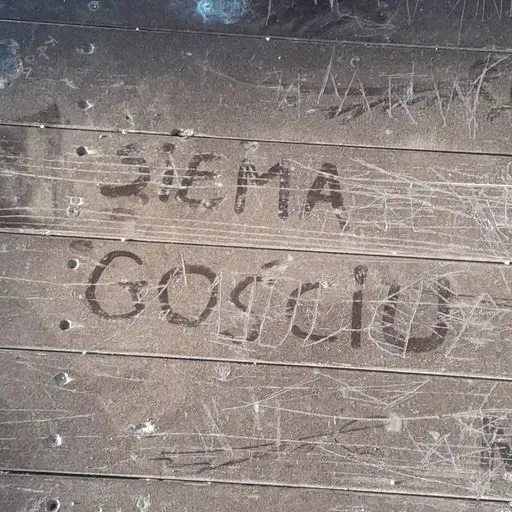 SIEMA
GOŚCIU